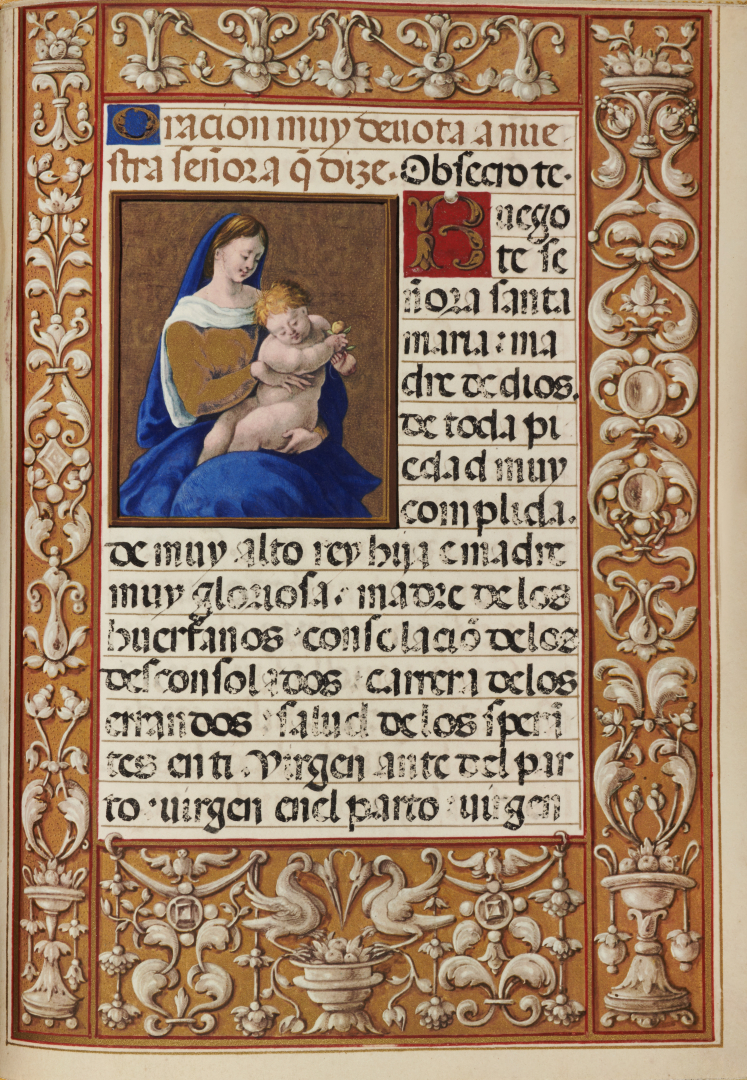 Oracion muy deuota a nue
stra señora q̄ dize. Obsecro te.
Ruego
te se
ñora santa
maria : ma
dre de dios.
de toda pi
edad muy
complida.
de muy alto rey hija e madre
muy gloriosa. madre de los
huerfanos · consolaciō de los
desconsolados carrera de los
errandos salud de los sperā
tes en ti. Virgen ante del par
to · uirgen enel parto uirgen